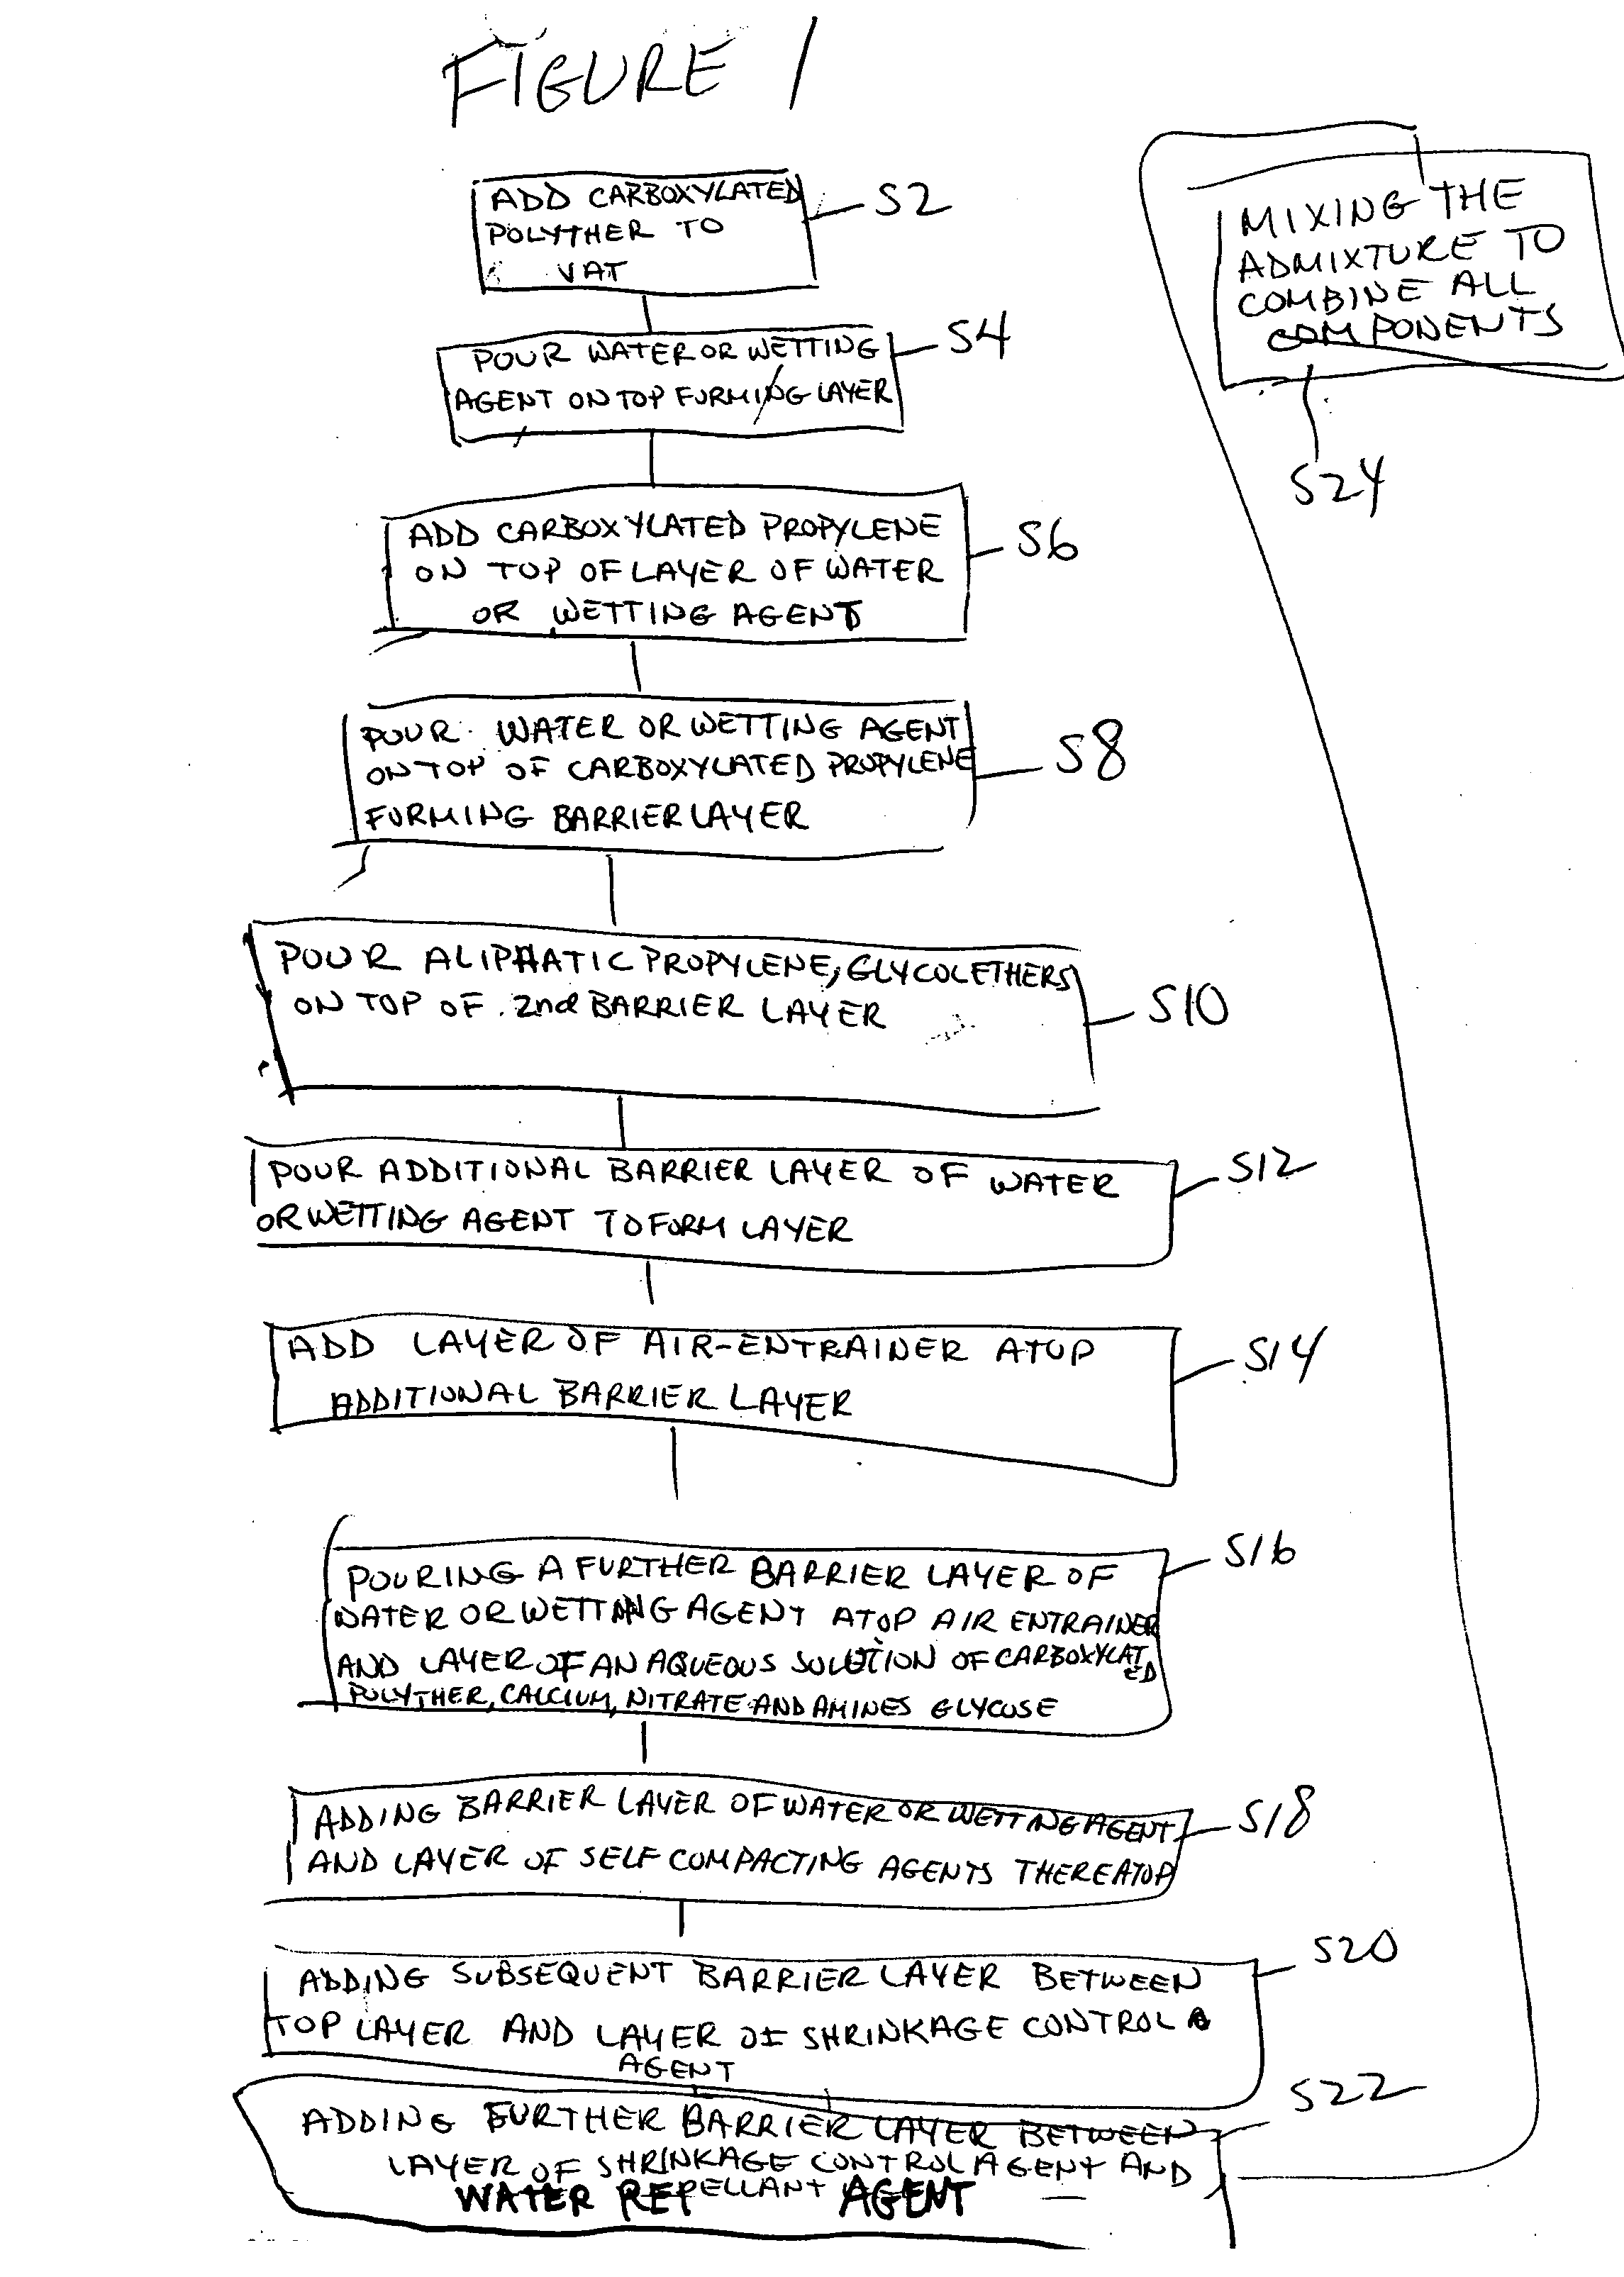 FIGURE 1
ADD CARBOXYLATED
POLYTHER TO
VAT
S2
POUR WATER OR WETTING
AGENT ON TOP FORMING LAYER
S4
ADD CARBOXYLATED PROPYLENE
ON TOP OF LAYER OF WATER
OR WETTING AGENT
S6
POUR WATER OR WETTING AGENT
ON TOP OF CARBOXYLATED PROPYLENE
FORMING BARRIER LAYER
S8
POUR ALIPHATIC PROPYLENE, GLYCOL ETHERS
ON TOP OF 2nd BARRIER LAYER
S10
POUR ADDITIONAL BARRIER LAYER OF WATER
OR WETTING AGENT TO FORM LAYER
S12
ADD LAYER OF AIR-ENTRAINER ATOP
ADDITIONAL BARRIER LAYER
S14
POURING A FURTHER BARRIER LAYER OF
WATER OR WETTING AGENT ATOP AIR ENTRAINER
AND LAYER OF AN AQUEOUS SOLUTION OF CARBOXYLAT
ED
POLYTHER, CALCIUM, NITRATE AND AMINES GLYCOSE
S16
ADDING BARRIER LAYER OF WATER OR WETTING AGENT
AND LAYER OF SELF COMPACTING AGENTS THEREATOP
S18
ADDING SUBSEQUENT BARRIER LAYER BETWEEN
TOP LAYER AND LAYER OF SHRINKAGE CONTROL
AGENT
S20
ADDING FURTHER BARRIER LAYER BETWEEN
LAYER OF SHRINKAGE CONTROL AGENT AND
WATER REPELLANT AGENT
S22
MIXING THE
ADMIXTURE TO
COMBINE ALL
COMPONENTS
S24